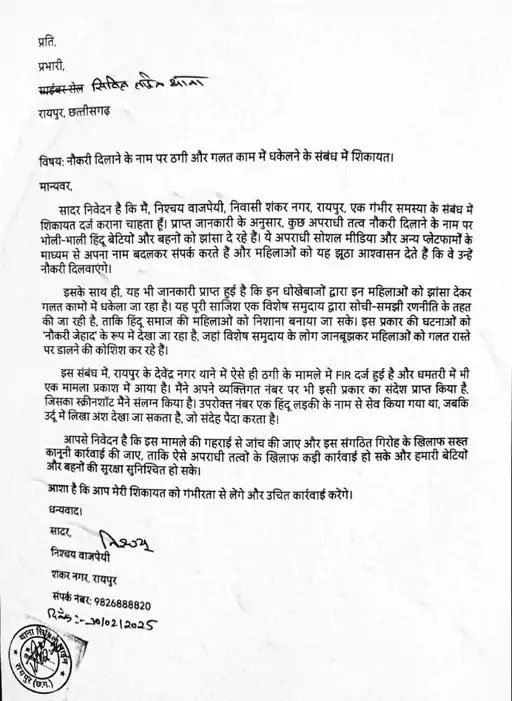 प्रति,
प्रभारी,
साईबर सेल सिविल लाईन थाना
रायपुर, छत्तीसगढ़
विषय: नौकरी दिलाने के नाम पर ठगी और गलत काम में धकेलने के संबंध में शिकायत।
मान्यवर,
सादर निवेदन है कि मैं, निश्चय वाजपेयी, निवासी शंकर नगर, रायपुर, एक गंभीर समस्या के संबंध में
शिकायत दर्ज कराना चाहता हूँ। प्राप्त जानकारी के अनुसार, कुछ अपराधी तत्व नौकरी दिलाने के नाम पर
भोली-भाली हिंदू बेटियों और बहनों को झांसा दे रहे है। ये अपराधी सोशल मीडिया और अन्य प्लेटफार्मों के
माध्यम से अपना नाम बदलकर संपर्क करते हैं और महिलाओं को यह झूठा आश्वासन देते है कि वे उन्हें
नौकरी दिलवाएंगे।
इसके साथ ही, यह भी जानकारी प्राप्त हुई है कि इन धोखेबाजों द्वारा इन महिलाओं को झांसा देकर
गलत कामों में धकेला जा रहा है। यह पूरी साजिश एक विशेष समुदाय द्वारा सोची-समझी रणनीति के तहत
की जा रही है, ताकि हिंदू समाज की महिलाओं को निशाना बनाया जा सके। इस प्रकार की घटनाओं को
'नौकरी जेहाद' के रूप में देखा जा रहा है, जहां विशेष समुदाय के लोग जानबूझकर महिलाओं को गलत रास्ते
पर डालने की कोशिश कर रहे है।
इस संबंध में, रायपुर के देवेंद्र नगर थाने में ऐसे ही ठगी के मामले में FIR दर्ज हुई है और धमतरी में भी
एक मामला प्रकाश में आया है। मैंने अपने व्यक्तिगत नंबर पर भी इसी प्रकार का संदेश प्राप्त किया है,
जिसका स्क्रीनशॉट मैंने संलग्न किया है। उपरोक्त नंबर एक हिंदू लड़की के नाम से सेव किया गया था, जबकि
उर्दू में लिखा अंश देखा जा सकता है, जो संदेह पैदा करता है।
आपसे निवेदन है कि इस मामले की गहराई से जांच की जाए और इस संगठित गिरोह के खिलाफ सख्त
कानूनी कार्रवाई की जाए, ताकि ऐसे अपराधी तत्वों के खिलाफ कड़ी कार्रवाई हो सके और हमारी बेटियों
और बहनों की सुरक्षा सुनिश्चित हो सके।
आशा है कि आप मेरी शिकायत को गंभीरता से लेंगे और उचित कार्रवाई करेंगे।
धन्यवाद।
सादर,
निश्चय
निश्चय वाजपेयी
शंकर नगर, रायपुर
संपर्क नंबर: 9826888820
दिनाँक:- 20/02/2025
थाना सिविल लाईन
रायपुर (छ.ग.)